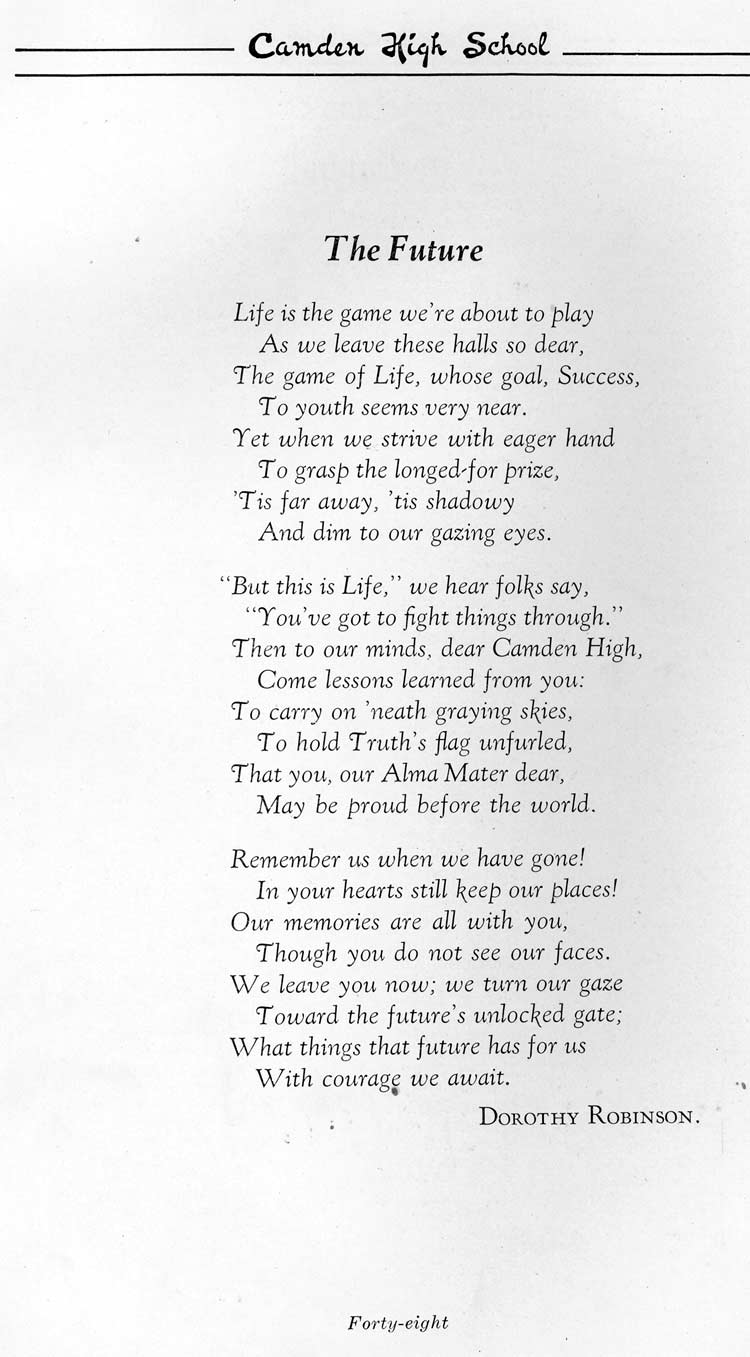 Camden High School
The Future
Life is the game we're about to play
As we leave these halls so dear,
The game of Life, whose goal, Success,
To youth seems very near.
Yet when we strive with eager hand
To grasp the longed-for prize,
'Tis far away, 'tis shadowy
And dim to our gazing eyes.
"But this is Life," we hear folks say,
"You've got to fight things through."
Then to our minds, dear Camden High,
Come lessons learned from you:
To carry on 'neath graying skies,
To hold Truth's flag unfurled,
That you, our Alma Mater dear,
May be proud before the world.
Remember us when we have gone!
In your hearts still keep our places!
Our memories are all with you,
Though you do not see our faces.
We leave you now; we turn our gaze
Toward the future's unlocked gate;
What things that future has for us
With courage we await.
Dorothy Robinson.
Forty-eight